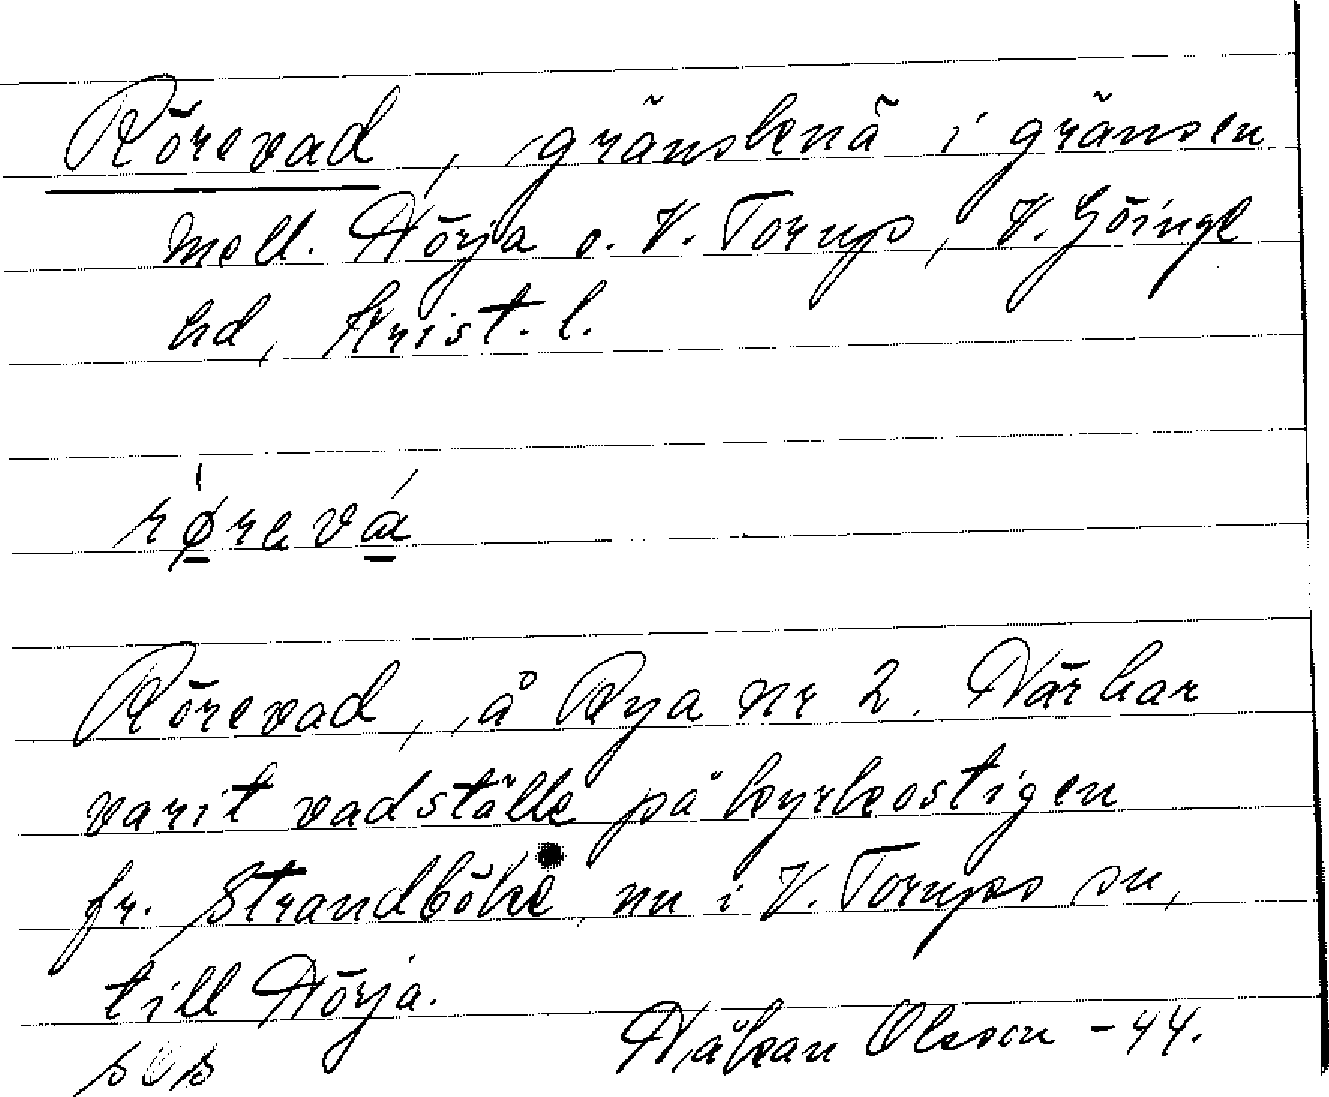 Rörevad, gränsbenä i gränsen
mell. Hörja o. V. Torup, V. Göinge
hd, Krist. l.
rørevá
Rörevad, å Rya nr 2. Här har
varit vadställe på kyrkostigen
fr. Strandböke, nu i V. Torups sn,
till Hörja.
Håkan Olsson -44.